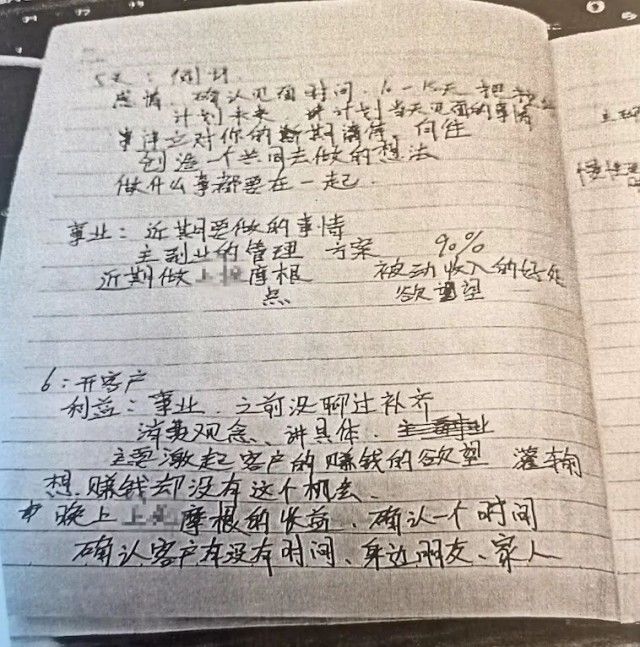 5天:
感情、确认见面时间、
计划未来 计划当天见面的事情
对你的 期
创造一个共同去做的想法
做什么事都要在一起.
事业: 近期要做的事情
主副业的管理 方案 90%
近期做 摩根 被动收入的好处
点 欲望
6:开客户
利益: 事业. 之前没聊过补齐
消费观念、讲具体.
主要激起客户的赚钱的欲望 灌输
想赚钱却没有这个机会.
晚上 摩根的收益、确认一个时间
确认客户有没有时间、身边朋友、家人